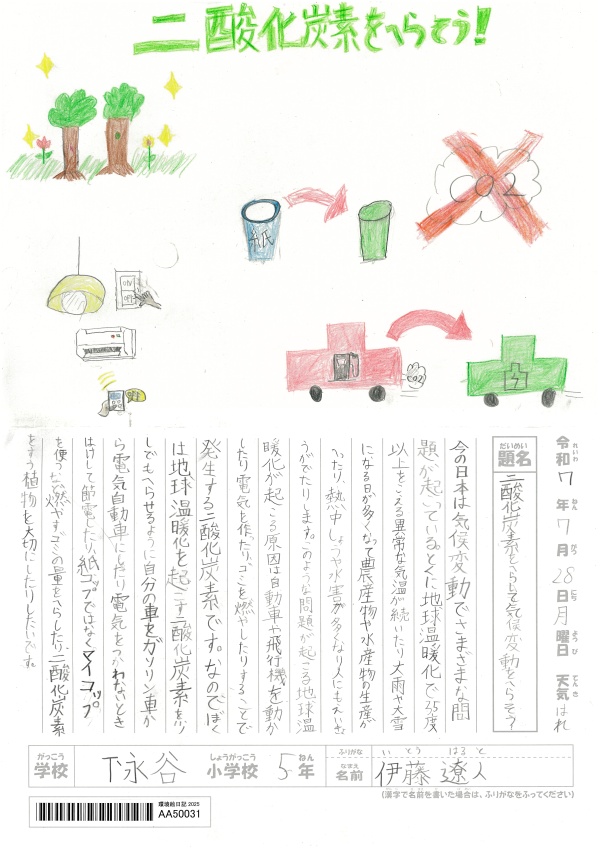 二酸化炭素をへらそう!
CO2
紙
ON
OFF
CO2
令和7年7月28日月曜日 天気はれ
れいわ ねん がつ にち ようび てんき
だいめい
題名
二酸化炭素をへらして気候変動をへらそう?
今の日本は気候変動でさまざまな問
題が起いている。とくに地球温暖化で35度
以上をこえる異常な気温が続いたり大雨や大雪
になる日が多くなって農産物や水産物の生産が
へったり、熱中しょうや水害が多くなり人にもえいき
うがでたりします。このような問題が起こる地球温
暖化が起こる原因は自動車や飛行機を動か
したり電気を作ったりゴミを燃やしたりすることで
発生する二酸化炭素です。なのでぼく
は地球温暖化を起こす二酸化炭素を少
しでもへらせるように自分の車をガソリン車か
ら電気自動車にしたり電気をつかわないとき
はけして節電したり紙コップではなくマイコップ
を使うなど燃やすゴミの量をへらしたり、二酸化炭素
をすう植物を大切にしたりしたいです。
がっこう しょうがっこう ねん
学校 下永谷 小学校 5年
ふりがな いとう はると
なまえ
名前 伊藤 遼人
(漢字で名前を書いた場合は、ふりがなをふってください)
環境絵日記 2025
AA50031